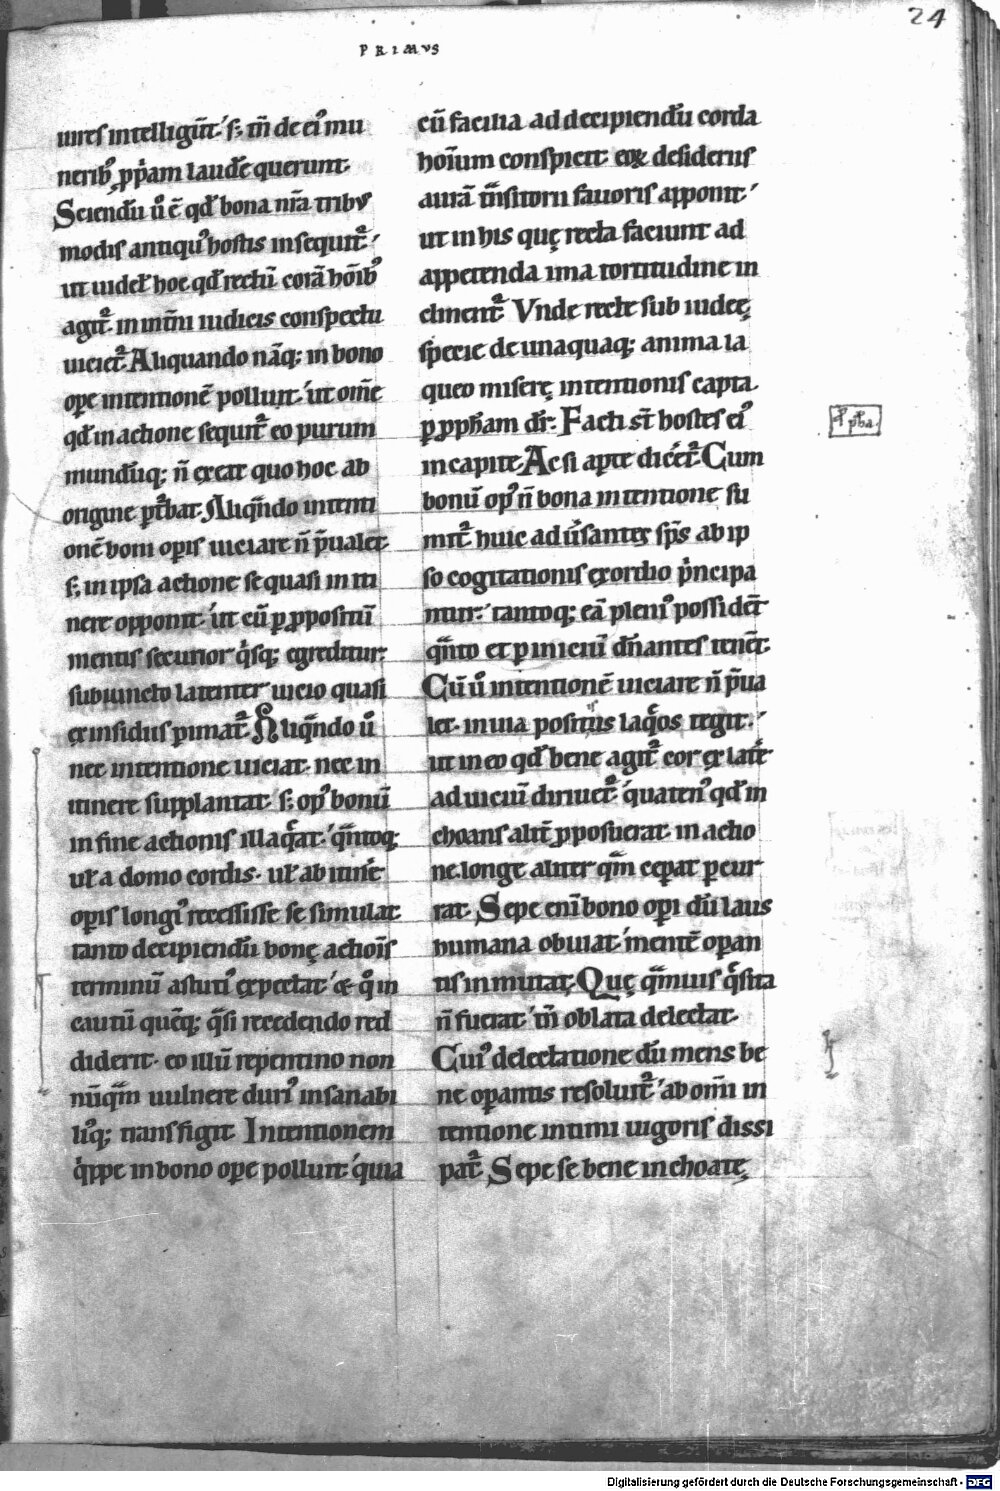 24
PRIMVS
uires intelligūt·' s; tm̄ de ei᷒ mu
nerib᷒ ꝓp̄am laudē querunt·
Sciendū ū ē qd̄ bona nr̄a trib᷒
modis antiqu᷒ hostis insequit᷑·'
ut uidel᷒ hoc qd̄ rectū corā hōib᷒
agit᷑· in int̄ni iudicis conspectu
uiciet᷑· Aliquando nāq; in bono
oꝑe intentionē polluit·' ut om̄e
qd̄ in actione sequit᷑· eo purum
mundūq; n̄ exeat quo hoc ab
origine ꝑt᷑bat· Aliqn̄do intenti
onē boni oꝑis uiciare n̄ p̄ualet·
s; in ipsa actione se quasi in iti
nere opponit·' ut cū ꝑ ꝓpositū
mentis securior q̇sq; egreditur·
subiuncto latenter uicio quasi
ex insidiis ꝑimat᷑· Aliqn̄do ū
nec intentione uiciat· nec in
itinere supplantat· s; op᷒ bonū
in fine actionis illaq̄at·' q̄ntoq;
ul̄ a domo cordis· ul̄ ab itine᷑
oꝑis longi᷒ recessisse se simulat·
tanto decipiendū bonę actiōis
terminū astuti᷒ expectat·' & q̊ in
cautū quēq; q̄si recedendo red
diderit· eo illū repentino non
nūq̄m uulnere duri᷒ insanabi
li᷒q; transfigit· Intentionem
q̇ppe in bono oꝑe polluit·' quia
cū facilia ad decipiendū corda
hoīum conspicit· eoꝝ desideriis
aurā t̄nsitorii fauoris apponit·'
ut in his quę recta faciunt ad
appetenda ima tortitudine in
clinent᷑· Vnde recte sub iudeę
specie de unaquaq; anima la
queo miserę intentionis capta·
ꝑ ꝓph̄am dr̄· Facti st̄ hostes ei᷒
in capite· Ac si aꝑte dicer̄et᷑· Cum
bonū op᷒ n̄ bona intentione su
mit᷑· huic aduersantes sp̄s ab ip
so cogitationis exordio p̄ncipa
ntur·' tantoq; eā pleni᷒ possident᷑
q̄nto et ꝑ iniciū dn̄antes tenent᷑·
Cū ū intentionē uiciare n̄ p̄ua
let· in uia positus laq̄os tegit·'
ut in eo qd̄ bene agit᷑ cor ex late᷑
ad uiciū diriuet᷑·' quaten᷒ qd̄ in
choans alit᷑ ꝓposuerat· in actio
ne longe aliter q̄m ceꝑat ꝑcur
rat· Sepe enī bono oꝑi dū laus
humana obuiat·' mentē oꝑan
tis inmutat· Quę q̄muis q̄sita
n̄ fuerat·' tm̄ oblata delectat·
Cui᷒ delectatione dū mens be
ne oꝑantis resoluit᷑·' ab om̄i in
tentione intimi uigoris dissi
pat᷑· Sepe se bene inchoatę
Digitalisierung gefördert durch die Deutsche Forschungsgemeinschaft - DFG